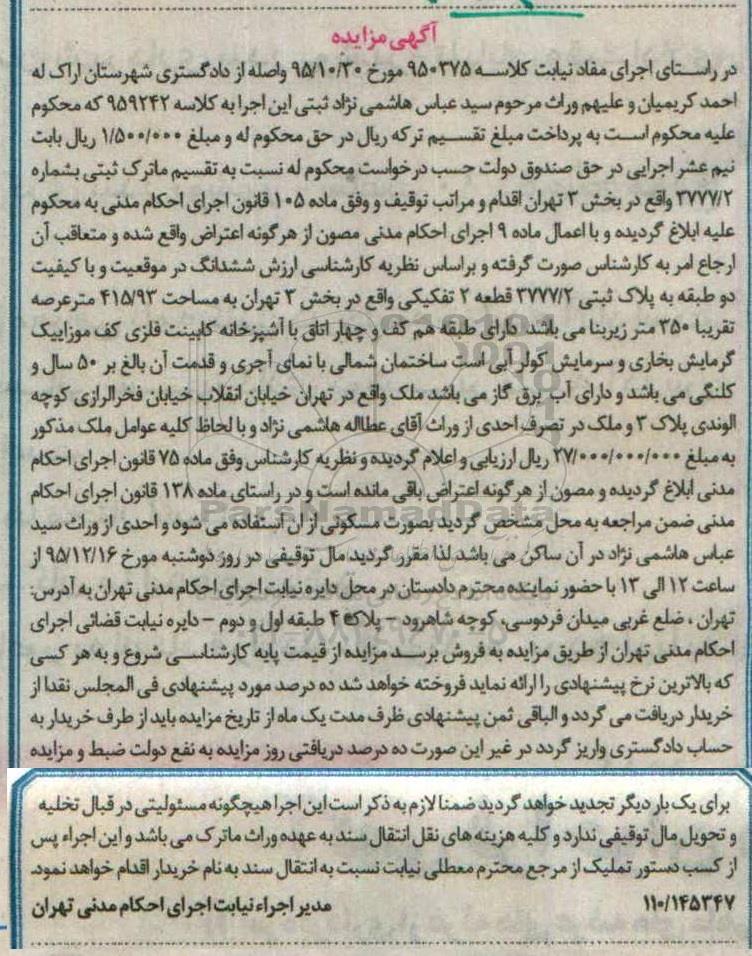 آگهی مزایده
در راستای اجرای مفاد نیابت کلاسه ۹۵۰۳۷۵ مورخ ۹۵/۱۰/۳۰ واصله از دادگستری شهرستان اراک له
احمد کریمیان و علیهم وراث مرحوم سید عباس هاشمی نژاد ثبتی این اجرا به کلاسه ۹۵۹۲۴۲ که محکوم
علیه محکوم است به پرداخت مبلغ تقسیم ترکه ریال در حق محکوم له و مبلغ ۱/۵۰۰/۰۰۰ ریال بابت
نیم عشر اجرایی در حق صندوق دولت حسب درخواست محکوم له نسبت به تقسیم ماترک ثبتی بشماره
۳۷۷۷/۲ واقع در بخش ۳ تهران اقدام و مراتب توقیف و وفق ماده ۱۰۵ قانون اجرای احکام مدنی به محکوم
علیه ابلاغ گردیده و با اعمال ماده ۹ اجرای احکام مدنی مصون از هرگونه اعتراض واقع شده و متعاقب آن
ارجاع امر به کارشناس صورت گرفته و براساس نظریه کارشناسی ارزش ششدانگ در موقعیت و با کیفیت
دو طبقه به پلاک ثبتی ۳۷۷۷/۲ قطعه ۲ تفکیکی واقع در بخش ۳ تهران به مساحت ۴۱۵/۹۳ مترعرصه
تقریبا ۳۵۰ متر زیربنا می باشد دارای طبقه هم کف و چهار اتاق با آشپزخانه کابینت فلزی کف موزاییک
گرمایش بخاری و سرمایش کولر آبی است ساختمان شمالی با نمای آجری و قدمت آن بالغ بر ۵۰ سال و
کلنگی می باشد و دارای آب برق گاز می باشد ملک واقع در تهران خیابان انقلاب خیابان فخرالرازی کوچه
الوندی پلاک ۳ و ملک در تصرف احدی از وراث آقای عطااله هاشمی نژاد و با لحاظ کلیه عوامل ملک مذکور
به مبلغ ۲۷/۰۰۰/۰۰۰/۰۰۰ ریال ارزیابی و اعلام گردیده و نظریه کارشناس وفق ماده ۷۵ قانون اجرای احکام
مدنی ابلاغ گردیده و مصون از هرگونه اعتراض باقی مانده است و در راستای ماده ۱۳۸ قانون اجرای احکام
مدنی ضمن مراجعه به محل مشخص گردید بصورت مسکونی از ان استفاده می شود و احدی از وراث سید
عباس هاشمی نژاد در آن ساکن می باشد لذا مقرر گردید مال توقیفی در روز دوشنبه مورخ ۹۵/۱۲/۱۶ از
ساعت ۱۲ الی ۱۳ با حضور نماینده محترم دادستان در محل دایره نیابت اجرای احکام مدنی تهران به آدرس:
تهران ، ضلع غربی میدان فردوسی، کوچه شاهرود - پلاک ۴ طبقه اول و دوم - دایره نیابت قضائی اجرای
احکام مدنی تهران از طریق مزایده به فروش برسد مزایده از قیمت پایه کارشناسی شروع و به هر کسی
که بالاترین نرخ پیشنهادی را ارائه نماید فروخته خواهد شد ده درصد مورد پیشنهادی فی المجلس نقدا از
خریدار دریافت می گردد و الباقی ثمن پیشنهادی ظرف مدت یک ماه از تاریخ مزایده باید از طرف خریدار به
حساب دادگستری واریز گردد در غیر این صورت ده درصد دریافتی روز مزایده به نفع دولت ضبط و مزایده
برای یک بار دیگر تجدید خواهد گردید ضمنا لازم به ذکر است این اجرا هیچگونه مسئولیتی در قبال تخلیه
و تحویل مال توقیفی ندارد و کلیه هزینه های نقل انتقال سند به عهده وراث ماترک می باشد و این اجراء پس
از کسب دستور تملیک از مرجع محترم معطلی نیابت نسبت به انتقال سند به نام خریدار اقدام خواهد نمود.
۱۱۰/۱۴۵۳۴۷ مدیر اجراء نیابت اجرای احکام مدنی تهران
ParsNamadData